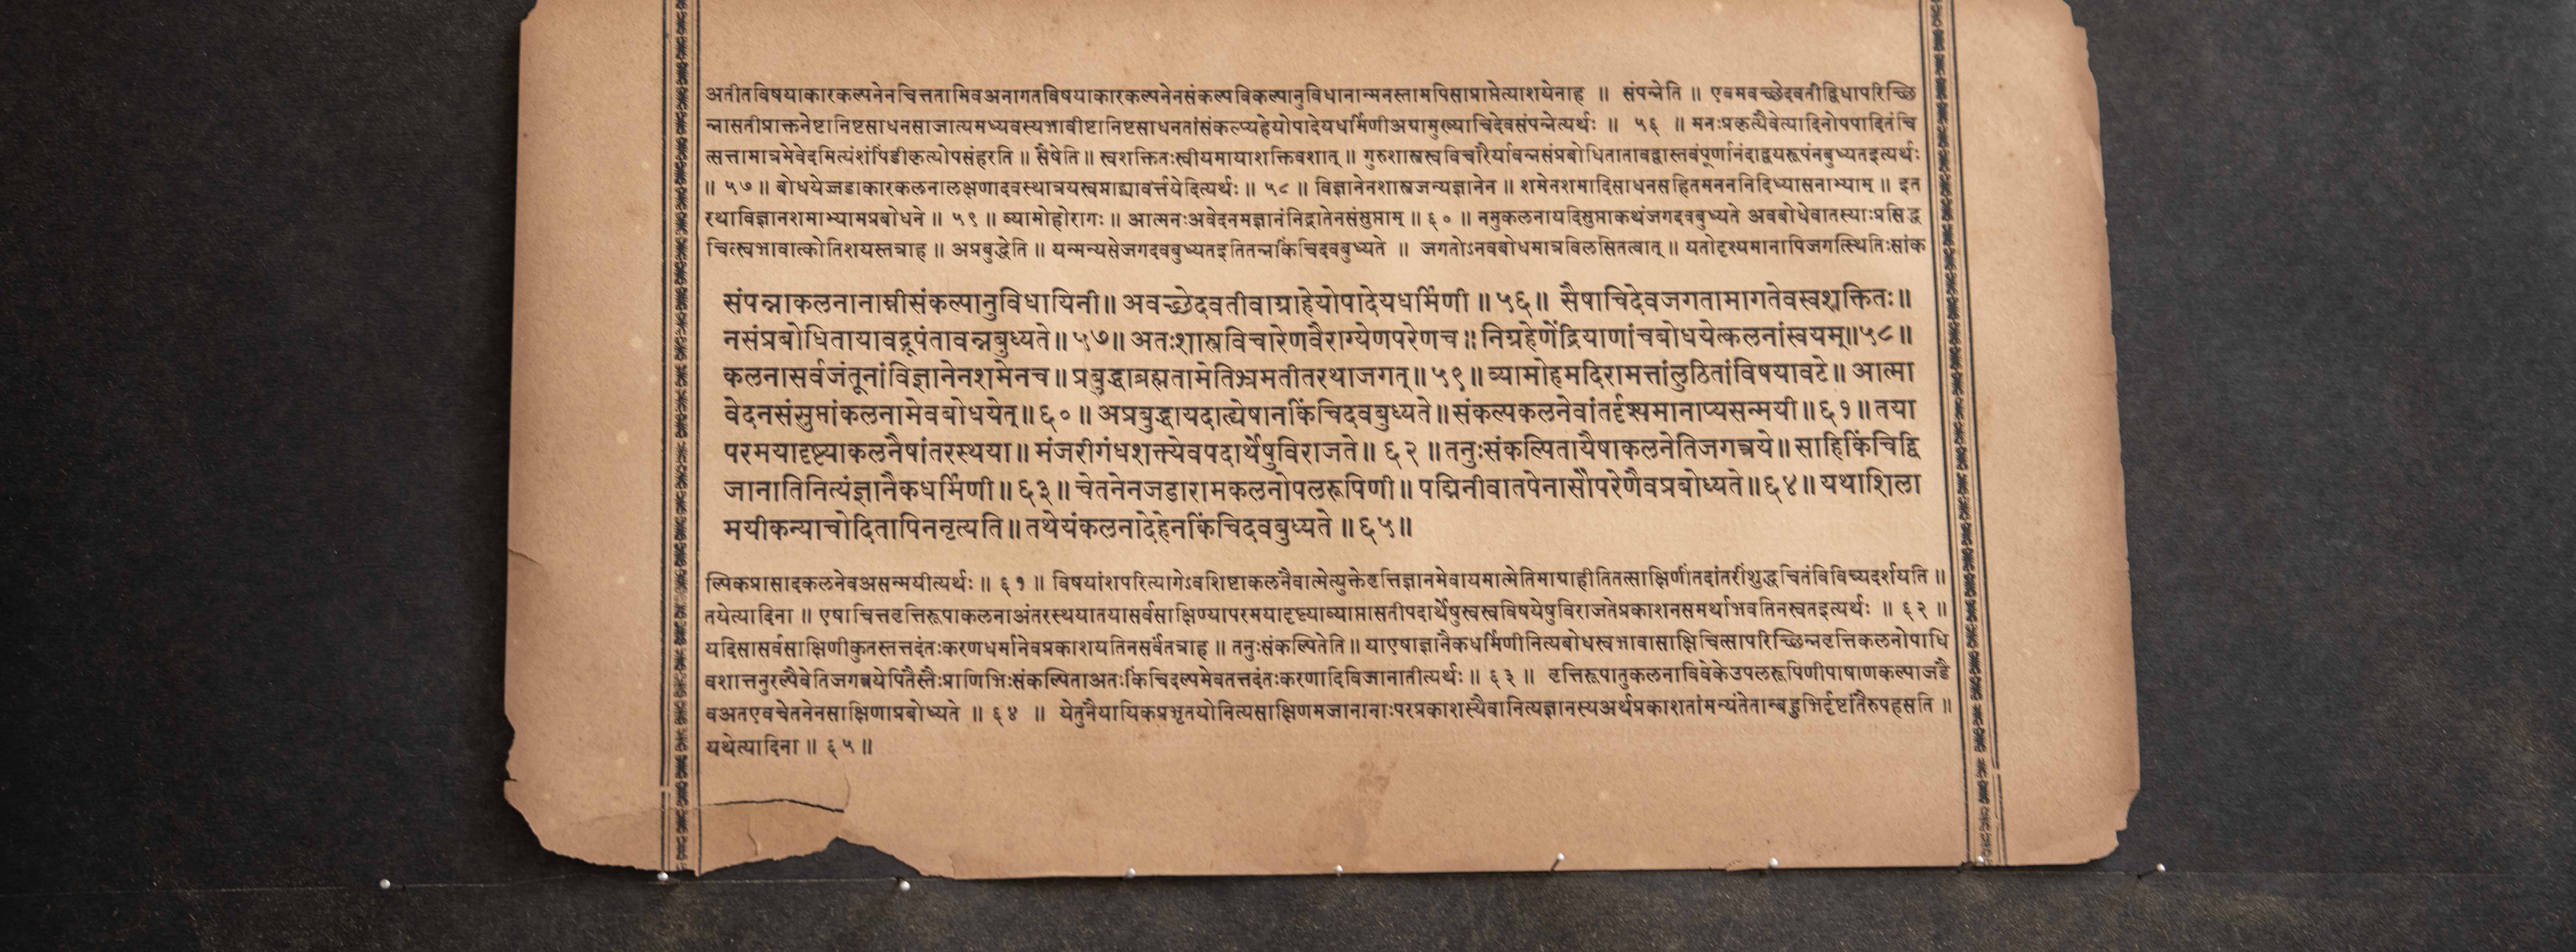 अतीतविषयाकारकल्पनेनचित्ततामिवअनागतविषयाकारकल्पनेनसंकल्पविकल्पानुविधानान्मनस्तामपिसाप्राप्तेत्याशयेनाह ॥ संपन्नेति ॥ एवमवच्छेदवतीद्विधापरिच्छि
न्नासतीप्राक्तनेष्टानिष्टसाधनसाजात्यमध्यवस्यभावीष्टानिष्टसाधनतांसंकल्प्यहेयोपादेयधर्मिणीअग्रामुख्याचिदेवसंपन्नेत्यर्थः ॥ ५६ ॥ मनःप्रकृत्यैवेत्यादिनोपपादितंचि
त्सत्तामात्रमेवेदमित्यंशंपिंडीकृत्योपसंहरति ॥ सैषेति ॥ स्वशक्तितःस्वीयमायाशक्तिवशात् ॥ गुरुशास्त्रस्वविचारैर्यावन्नसंप्रबोधितातावद्वास्तवंपूर्णानंदाद्वयरूपंनबुध्यतइत्यर्थः
॥ ५७ ॥ बोधयेज्जडाकारकलनालक्षणादवस्थात्रयस्वप्नाद्व्यावर्त्तयेदित्यर्थः ॥ ५८ ॥ विज्ञानेनशास्त्रजन्यज्ञानेन ॥ शमेनशमादिसाधनसहितमनननिदिध्यासनाभ्याम् ॥ इत
रथाविज्ञानशमाभ्यामप्रबोधने ॥ ५९ ॥ व्यामोहोरागः ॥ आत्मनःअवेदनमज्ञानंनिद्रातेनसंसुप्ताम् ॥ ६० ॥ ननुकलनायदिसुप्ताकथंजगदवबुध्यते अवबोधेवातस्याःप्रसिद्ध
चित्स्वभावात्कोतिशयस्तत्राह ॥ अप्रबुद्धेति ॥ यन्मन्यसेजगदवबुध्यतइतितन्नकिंचिदवबुध्यते ॥ जगतोऽनवबोधमात्रविलसितत्वात् ॥ यतोदृश्यमानापिजगत्स्थितिःसांक
संपन्नाकलनानाम्नीसंकल्पानुविधायिनी॥ अवच्छेदवतीवाग्राहेयोपादेयधर्मिणी ॥५६॥ सैषाचिदेवजगतामागतेवस्वशक्तितः॥
नसंप्रबोधितायावद्रूपंतावन्नबुध्यते॥५७॥ अतःशास्त्रविचारेणवैराग्येणपरेणच॥ निग्रहेणेंद्रियाणांचबोधयेत्कलनांस्वयम्॥५८॥
कलनासर्वजंतूनांविज्ञानेनशमेनच॥ प्रबुद्धाब्रह्मतामेतिभ्रमतीतरथाजगत्॥५९॥ व्यामोहमदिरामत्तांलुठितांविषयावटे॥ आत्मा
वेदनसंसुप्तांकलनामेवबोधयेत्॥६०॥ अप्रबुद्धायदात्वेषानकिंचिदवबुध्यते॥संकल्पकलनेवांतर्दृश्यमानाप्यसन्मयी॥६१॥तया
परमयादृष्ट्याकलनैषांतरस्थया॥ मंजरीगंधशक्त्येवपदार्थेषुविराजते॥ ६२ ॥तनुःसंकल्पितायैषाकलनेतिजगत्रये॥ साहिकिंचिद्वि
जानातिनित्यंज्ञानैकधर्मिणी॥६३॥ चेतनेनजडारामकलनोपलरूपिणी॥ पद्मिनीवातपेनासौपरेणैवप्रबोध्यते॥६४॥ यथाशिला
मयीकन्याचोदितापिननृत्यति॥ तथेयंकलनादेहेनकिंचिदवबुध्यते ॥६५॥
ल्पिकप्रासादकलनेवअसन्मयीत्यर्थः ॥ ६१ ॥ विषयांशपरित्यागेऽवशिष्टाकलनैवात्मेत्युक्तेवृत्तिज्ञानमेवायमात्मेतिमाग्राहीतितत्साक्षिणींतदांतरींशुद्धचितंविविच्यदर्शयति ॥
तयेत्यादिना ॥ एषाचित्तवृत्तिरूपाकलनाअंतरस्थयातयासर्वसाक्षिण्यापरमयादृष्ट्याव्याप्तासतीपदार्थेषुस्वस्वविषयेषुविराजतेप्रकाशनसमर्थाभवतिनस्वतइत्यर्थः ॥ ६२ ॥
यदिसासर्वसाक्षिणीकुतस्तत्तदंतःकरणधर्मानेवप्रकाशयतिनसर्वंतत्राह ॥ तनुःसंकल्पितेति ॥ याएषाज्ञानैकधर्मिणीनित्यबोधस्वभावासाक्षिचित्सापरिच्छिन्नवृत्तिकलनोपाधि
वशात्तनुरल्पैवेतिजगत्रयेपितैस्तैःप्राणिभिःसंकल्पिताअतःकिंचिदल्पमेवतत्तदंतःकरणादिविजानातीत्यर्थः ॥ ६३ ॥ वृत्तिरूपातुकलनाविवेकेउपलरूपिणीपाषाणकल्पाजडै
वअतएवचेतनेनसाक्षिणाप्रबोध्यते ॥ ६४ ॥ येतुनैयायिकप्रभृतयोनित्यसाक्षिणमजानानाःपरप्रकाशस्यैवानित्यज्ञानस्यअर्थप्रकाशतांमन्यंतेतान्बहुभिर्दृष्टांतैरुपहसति ॥
यथेत्यादिना ॥ ६५ ॥